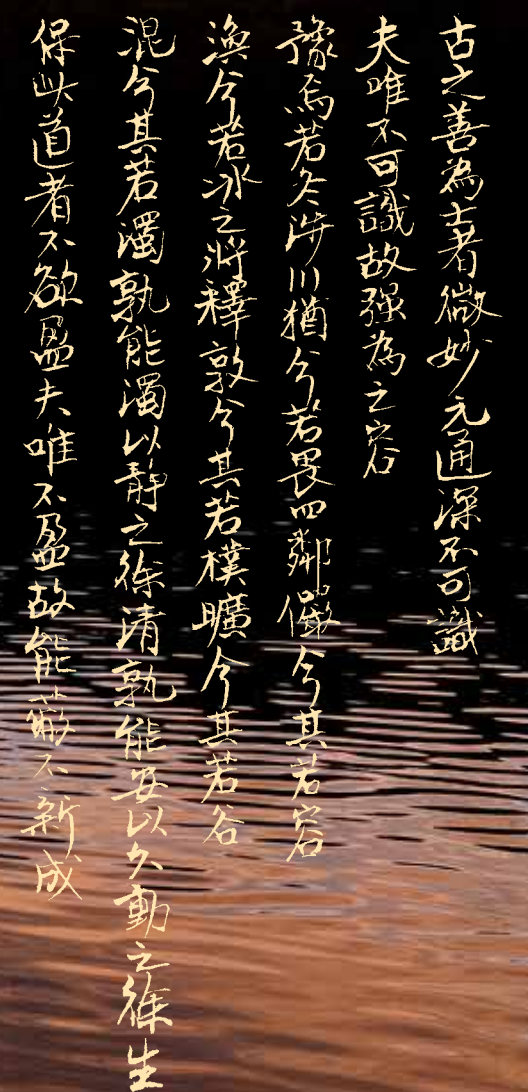 古之善為士者微妙元通深不可識
夫唯不可識故强為之容
豫焉若冬涉川猶兮若畏四鄰儼兮其若容
渙兮若冰之將釋敦兮其若樸曠兮其若谷
混兮其若濁孰能濁以靜之徐清孰能安以久動之徐生
保此道者不欲盈夫唯不盈故能蔽不新成